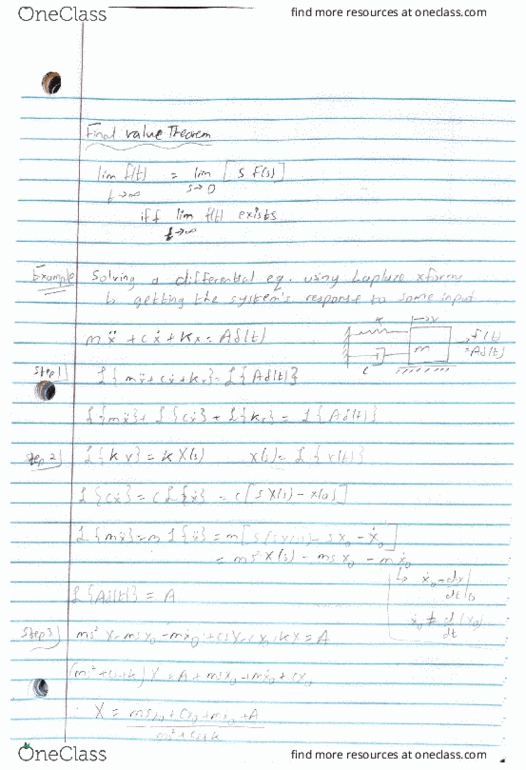 OneClass
find more resources at oneclass.com
Final value Theorem
lim f(t) = lim [ s F(s) ]
t→∞ s→0
iff lim f(t) exists
t→∞
Example Solving a differential eq. using Laplace xforms
& getting the system's response to some input
mẍ + cẋ + kx = Aδ(t)
k →x
m f(t)
=Aδ(t)
c
Step 1) L{mẍ+cẋ+kx}=L{Aδ(t)}
L{mẍ}+L{cẋ}+L{kx}=L{Aδ(t)}
Step 2) L{kx}=kX(s) X(s)=L{x(t)}
L{cẋ}=cL{ẋ}=c[sX(s)-x(0)]
L{mẍ}=mL{ẍ}=m[s(sX(s))-sx₀-ẋ₀]
=ms²X(s)-msx₀-mẋ₀
ẋ₀=dx/dt|₀
L{Aδ(t)}=A
ẋ₀≠d/dt(x₀)
Step 3) ms²X-msx₀-mẋ₀+csX-cx₀+kX=A
(ms²+cs+k)X=A+msx₀+mẋ₀+cx₀
∴ X=msx₀+cx₀+mẋ₀+A
ms²+cs+k
OneClass
find more resources at oneclass.com